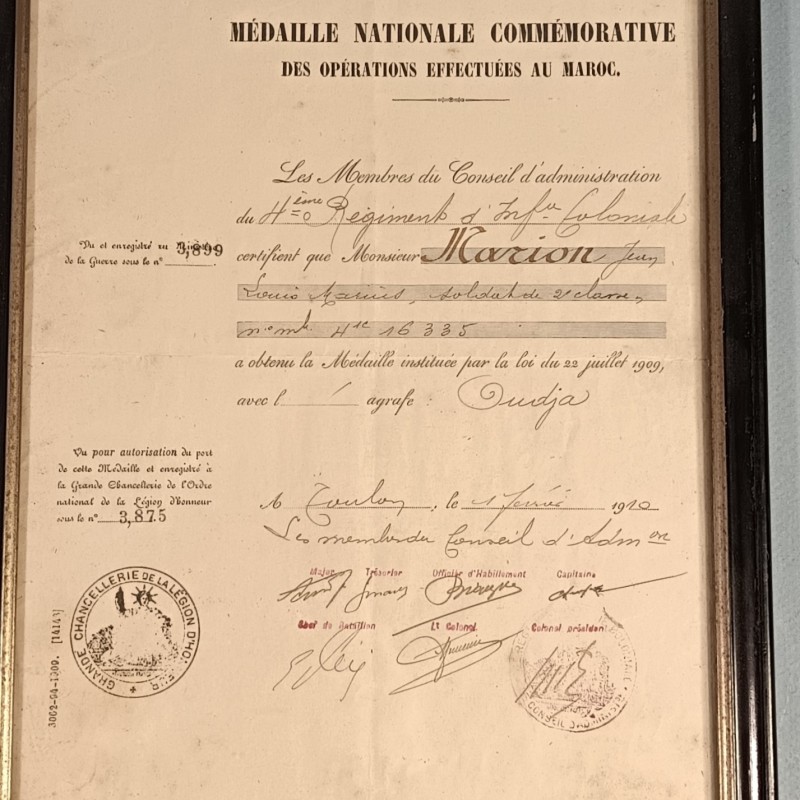 MÉDAILLE NATIONALE COMMÉMORATIVE
DES OPÉRATIONS EFFECTUÉES AU MAROC.
Les Membres du Conseil d'administration
du 4ème Régiment d'Infie Coloniale
certifient que Monsieur Marion Jean
Louis Marius, soldat de 2e classe,
n° mle 4e 16335
a obtenu la Médaille instituée par la loi du 22 juillet 1909,
avec l' agrafe : Oudja
Vu et enregistré au Ministère
de la Guerre sous le n° 3,899
Vu pour autorisation du port
de cette Médaille et enregistré à
la Grande Chancellerie de l'Ordre
national de la Légion d'Honneur
sous le n° 3,875
A Toulon, le 1 février 1910
Les membres du Conseil d'Admon
Major Trésorier Officier d'Habillement Capitaine
Chef de Bataillon Lt Colonel Colonel président
GRANDE CHANCELLERIE DE LA LÉGION D'HONNEUR
CONSEIL D'ADMINISTR
3062-94-1909. [14143]